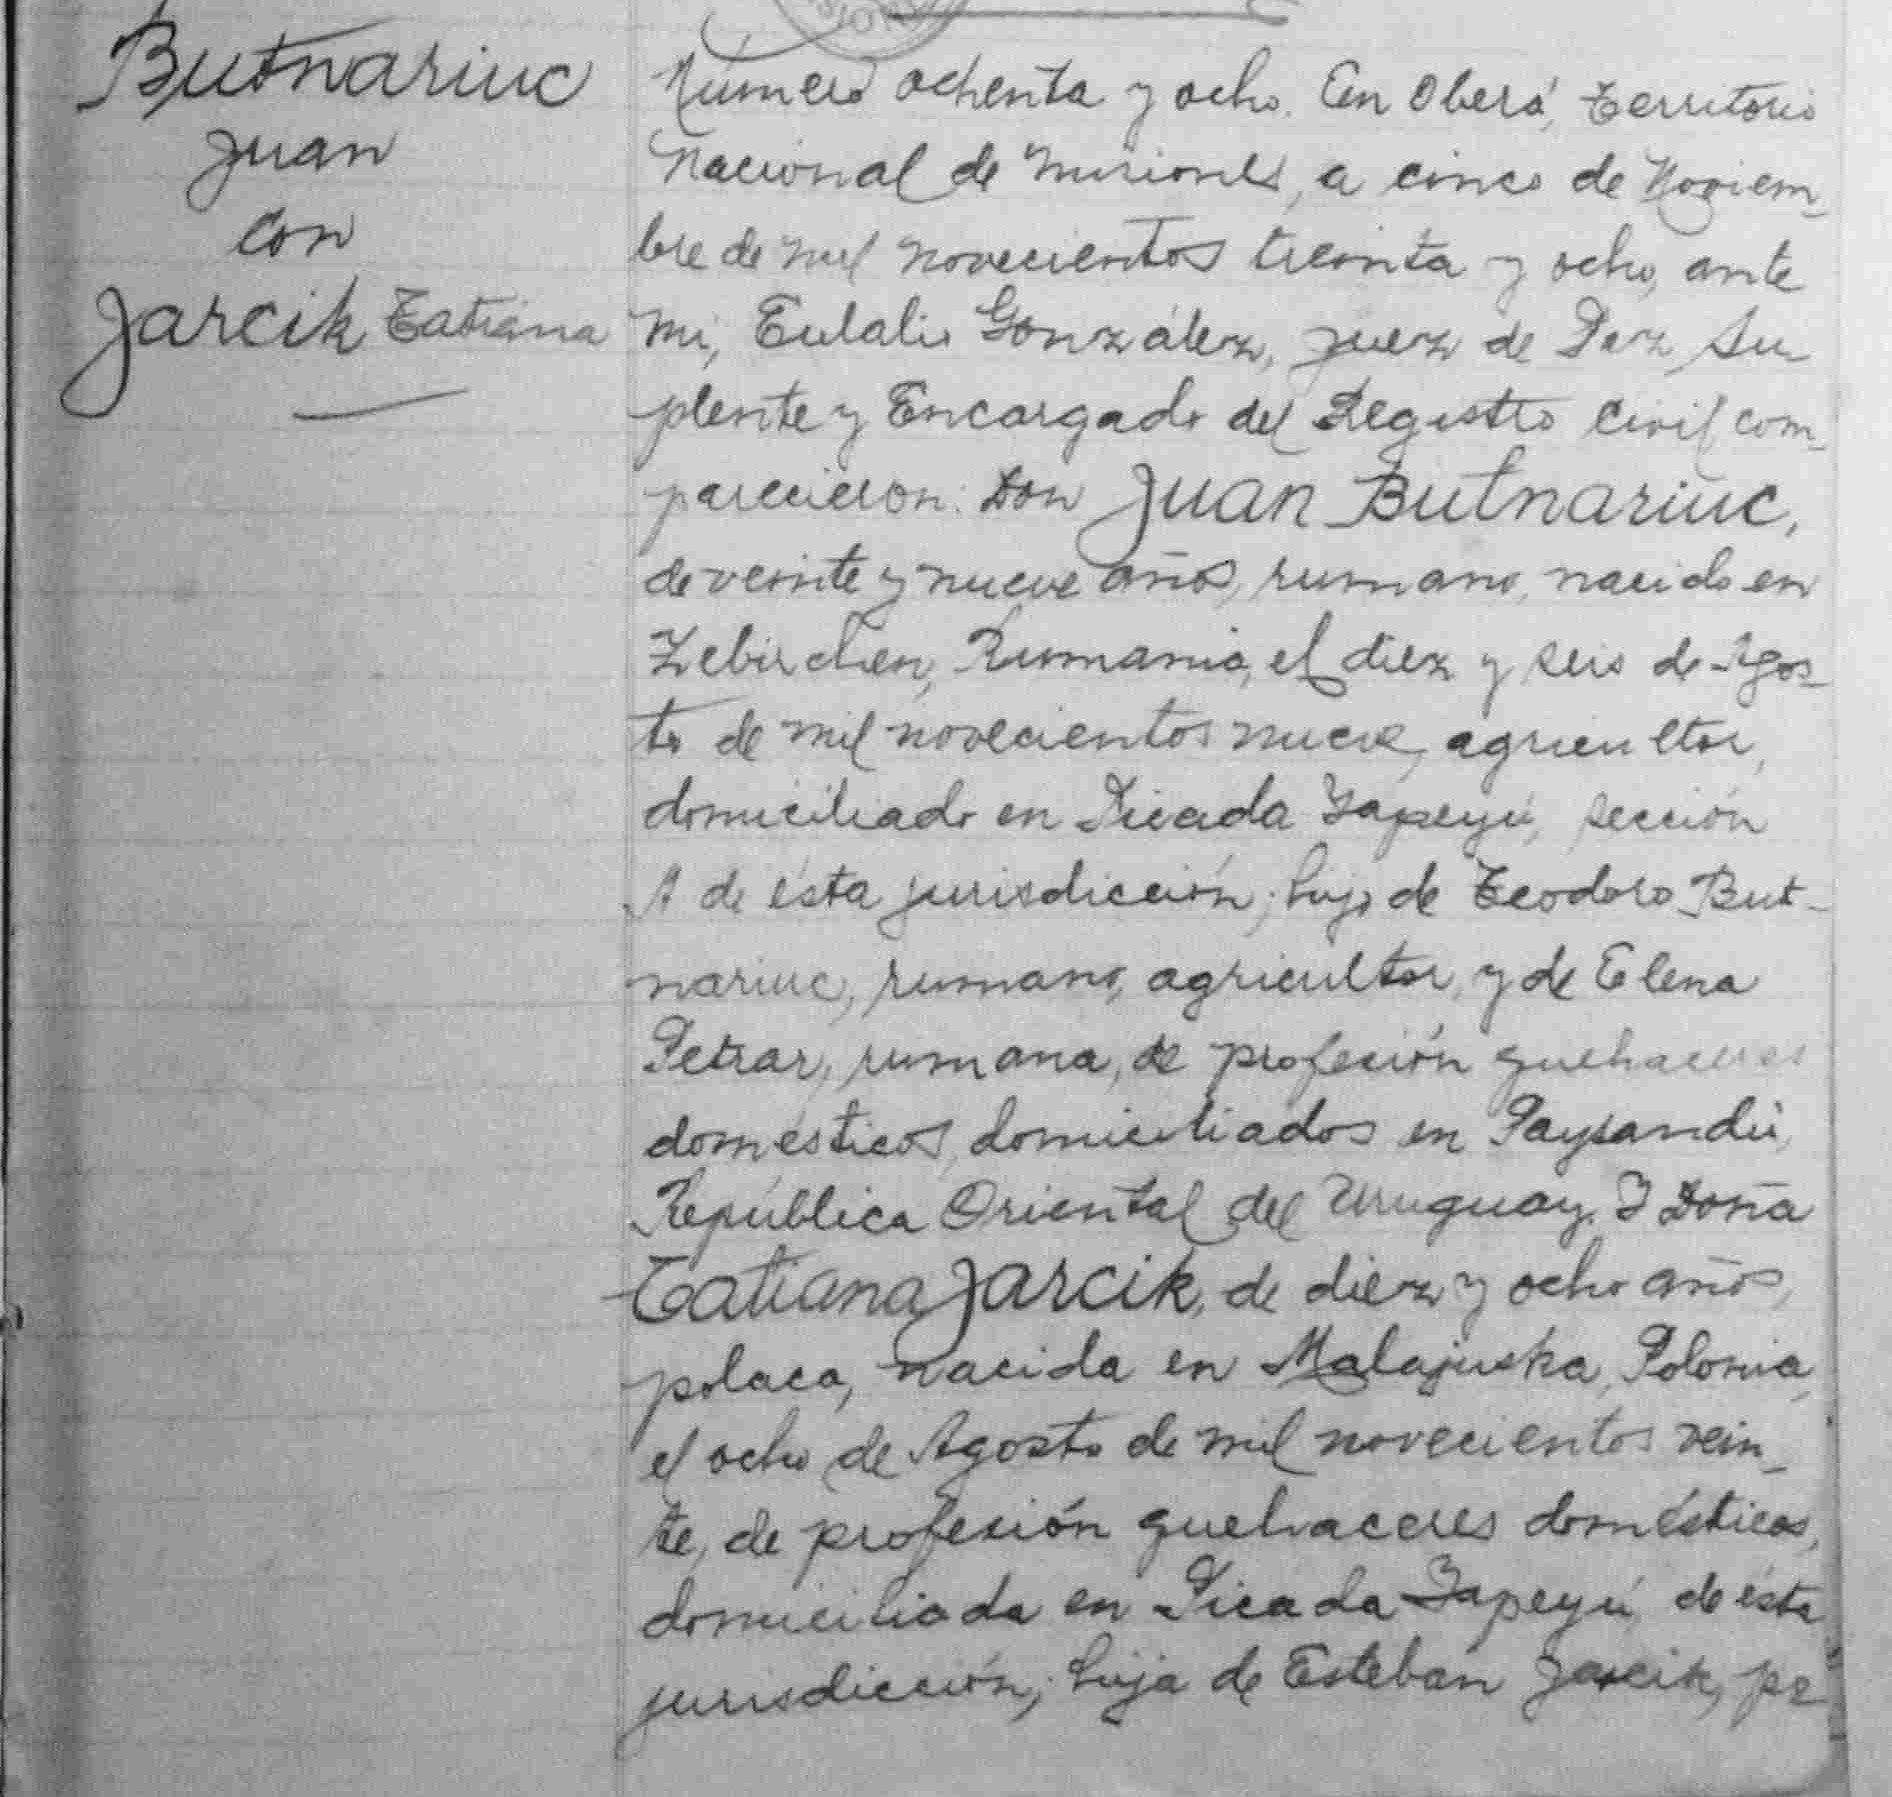 Butnariuc
Juan
con
Jarcik Tatiana
Número ochenta y ocho. En Oberá, Territorio
Nacional de Misiones, a cinco de Noviem-
bre de mil novecientos treinta y ocho, ante
mi, Eulalio González, Juez de Paz Su-
plente y Encargado del Registro Civil com-
parecieron: Don Juan Butnariuc,
de veinte y nueve años, rumano, nacido en
Zebirchen, Rumania, el diez y seis de Agos-
to de mil novecientos nueve, agricultor,
domiciliado en Picada Yapeyú, sección
A de ésta jurisdicción; hijo de Teodoro But-
nariuc, rumano, agricultor, y de Elena
Petrar, rumana, de profesión quehaceres
domésticos, domiciliados en Paysandú,
República Oriental del Uruguay. Y Doña
Tatiana Jarcik, de diez y ocho años,
polaca, nacida en Malajuska, Polonia,
el ocho de Agosto de mil novecientos vein-
te, de profesión quehaceres domésticos,
domiciliada en Picada Yapeyú de ésta
jurisdicción; hija de Esteban Jarcik, po